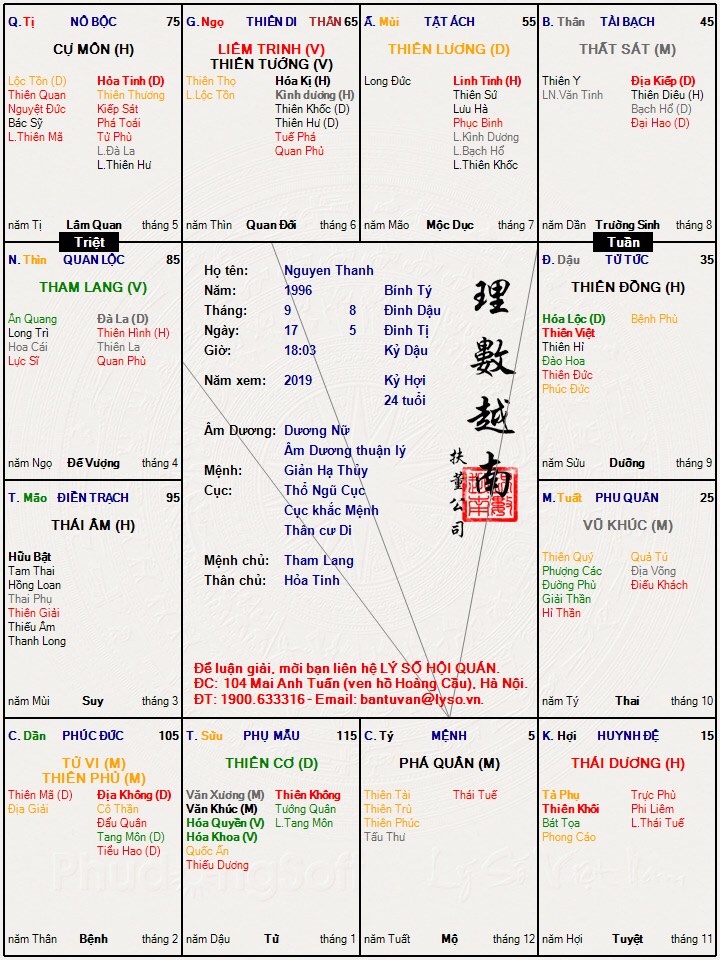 Q. Tị NÔ BỘC 75
CỰ MÔN (H)
Lộc Tồn (D) Hỏa Tinh (D)
Thiên Quan Thiên Thương
Nguyệt Đức Kiếp Sát
Bác Sỹ Phá Toái
L.Thiên Mã Tử Phù
L.Đà La
L.Thiên Hư
năm Tị Lâm Quan tháng 5
G. Ngọ THIÊN DI THÂN 65
LIÊM TRINH (V)
THIÊN TƯỚNG (V)
Thiên Thọ Hóa Kị (H)
L.Lộc Tồn Kình dương (H)
Thiên Khốc (D)
Thiên Hư (D)
Tuế Phá
Quan Phủ
năm Thìn Quan Đới tháng 6
Ấ. Mùi TẬT ÁCH 55
THIÊN LƯƠNG (D)
Long Đức Linh Tinh (H)
Thiên Sứ
Lưu Hà
Phục Binh
L.Kình Dương
L.Bạch Hổ
L.Thiên Khốc
năm Mão Mộc Dục tháng 7
B. Thân TÀI BẠCH 45
THẤT SÁT (M)
Thiên Y Địa Kiếp (D)
LN.Văn Tinh Thiên Diêu (H)
Bạch Hổ (D)
Đại Hao (D)
năm Dần Trường Sinh tháng 8
Triệt
Tuần
N. Thìn QUAN LỘC 85
THAM LANG (V)
Ân Quang Đà La (D)
Long Trì Thiên Hình (H)
Hoa Cái Thiên La
Lực Sĩ Quan Phù
năm Ngọ Đế Vượng tháng 4
Họ tên: Nguyen Thanh
Năm: 1996 Bính Tý
Tháng: 9 8 Đinh Dậu
Ngày: 17 5 Đinh Tị
Giờ: 18:03 Kỷ Dậu
Năm xem: 2019 Kỷ Hợi
24 tuổi
Âm Dương: Dương Nữ
Âm Dương thuận lý
Mệnh: Giản Hạ Thủy
Cục: Thổ Ngũ Cục
Cục khắc Mệnh
Thân cư Di
Mệnh chủ: Tham Lang
Thân chủ: Hỏa Tinh
理數越南
扶董公司
Để luận giải, mời bạn liên hệ LÝ SỐ HỘI QUÁN.
ĐC: 104 Mai Anh Tuấn (ven hồ Hoàng Cầu), Hà Nội.
ĐT: 1900.633316 - Email: bantuvan@lyso.vn.
Đ. Dậu TỬ TỨC 35
THIÊN ĐỒNG (H)
Hóa Lộc (D) Bệnh Phù
Thiên Việt
Thiên Hỉ
Đào Hoa
Thiên Đức
Phúc Đức
năm Sửu Dưỡng tháng 9
T. Mão ĐIỀN TRẠCH 95
THÁI ÂM (H)
Hữu Bật
Tam Thai
Hồng Loan
Thai Phụ
Thiên Giải
Thiếu Âm
Thanh Long
năm Mùi Suy tháng 3
M. Tuất PHU QUÂN 25
VŨ KHÚC (M)
Thiên Quý Quả Tú
Phượng Các Địa Võng
Đường Phù Điếu Khách
Giải Thần
Hỉ Thần
năm Tý Thai tháng 10
C. Dần PHÚC ĐỨC 105
TỬ VI (M)
THIÊN PHỦ (M)
Thiên Mã (D) Địa Không (D)
Địa Giải Cô Thần
Đẩu Quân
Tang Môn (D)
Tiểu Hao (D)
năm Thân Bệnh tháng 2
T. Sửu PHỤ MẪU 115
THIÊN CƠ (D)
Văn Xương (M) Thiên Không
Văn Khúc (M) Tướng Quân
Hóa Quyền (V) L.Tang Môn
Hóa Khoa (V)
Quốc Ấn
Thiếu Dương
năm Dậu Tử tháng 1
C. Tý MỆNH 5
PHÁ QUÂN (M)
Thiên Tài Thái Tuế
Thiên Trù
Thiên Phúc
Tấu Thư
năm Tuất Mộ tháng 12
K. Hợi HUYNH ĐỆ 15
THÁI DƯƠNG (H)
Tả Phụ Trực Phù
Thiên Khôi Phi Liêm
Bát Tọa L.Thái Tuế
Phong Cáo
năm Hợi Tuyệt tháng 11